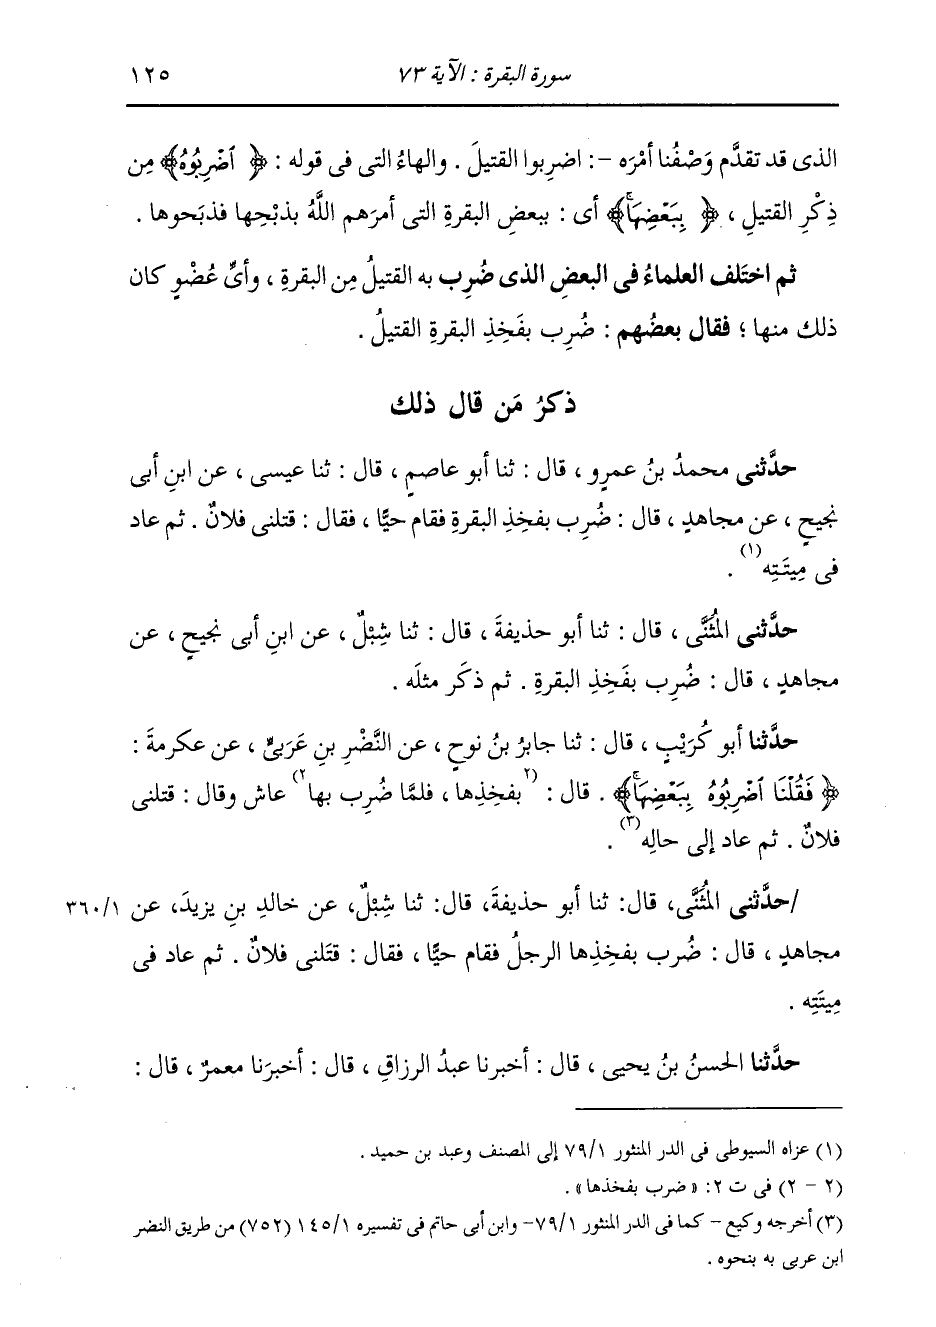 سورة البقرة : الآية ٧٣
١٢٥
الذى قد تقدَّم وَصْفُنا أمْرَه -: اضرِبوا القتيلَ . والهاءُ التى فى قوله : ﴿ اَضْرِبُوهُ ﴾ مِن
ذِكْرِ القتيلِ ، ﴿ بِبَعْضِهَا ﴾ أى : ببعضِ البقرةِ التى أمرَهم اللَّهُ بذبْحِها فذبَحوها .
ثم اختَلف العلماءُ فى البعضِ الذى ضُرِب به القتيلُ مِن البقرةِ ، وأىُّ عُضْوٍ كان
ذلك منها ؛ فقال بعضُهم : ضُرِب بفَخِذِ البقرةِ القتيلُ .
ذكرُ مَن قال ذلك
حدَّثنى محمدُ بنُ عمرٍو ، قال : ثنا أبو عاصمٍ ، قال : ثنا عيسى ، عن ابنِ أبى
نجيحٍ ، عن مجاهدٍ ، قال : ضُرِب بفخِذِ البقرةِ فقام حيًّا ، فقال : قتلنى فلانٌ . ثم عاد
فى مِيتَتِه (١) .
حدَّثنى المُثَنَّى ، قال : ثنا أبو حذيفةَ ، قال : ثنا شِبْلٌ ، عن ابنِ أبى نجيحٍ ، عن
مجاهدٍ ، قال : ضُرِب بفَخِذِ البقرةِ . ثم ذكَر مثلَه .
حدَّثنا أبو كُرَيْبٍ ، قال : ثنا جابرُ بنُ نوحٍ ، عن النَّضْرِ بنِ عَرَبىٍّ ، عن عكرمةَ :
﴿ فَقُلْنَا اَضْرِبُوهُ بِبَعْضِهَا ﴾ . قال : (٢ بفخِذِها ، فلمَّا ضُرِب بها ٢) عاش وقال : قتلنى
فلانٌ . ثم عاد إلى حالِه (٣) .
/حدَّثنى المُثَنَّى، قال: ثنا أبو حذيفةَ، قال: ثنا شِبْلٌ، عن خالدِ بنِ يزيدَ، عن ٣٦٠/١
مجاهدٍ ، قال : ضُرِب بفخِذِها الرجلُ فقام حيًّا ، فقال : قتَلنى فلانٌ . ثم عاد فى
مِيتَتِه .
حدَّثنا الحسنُ بنُ يحيى ، قال : أخبرنا عبدُ الرزاقِ ، قال : أخبرَنا معمرٌ ، قال :
(١) عزاه السيوطى فى الدر المنثور ٧٩/١ إلى المصنف وعبد بن حميد .
(٢ - ٢) فى ت ٢: « ضرب بفخذها » .
(٣) أخرجه وكيع - كما فى الدر المنثور ٧٩/١- وابن أبى حاتم فى تفسيره ١٤٥/١ (٧٥٢) من طريق النضر
ابن عربى به بنحوه .